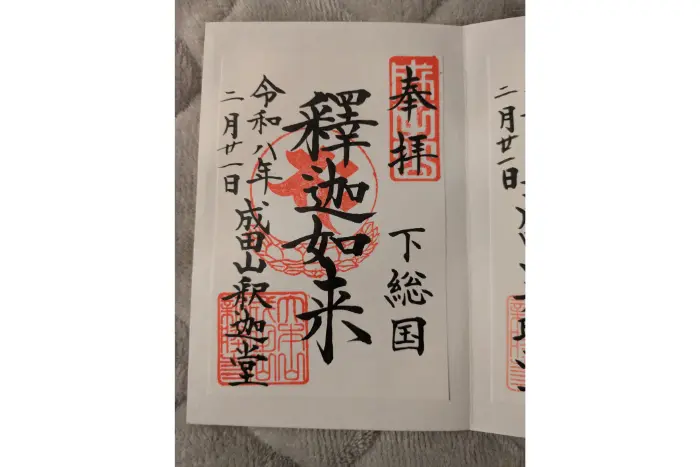 奉拝
下総国
釋迦如来
令和八年
二月廿一日
成田山釈迦堂
二月廿一日